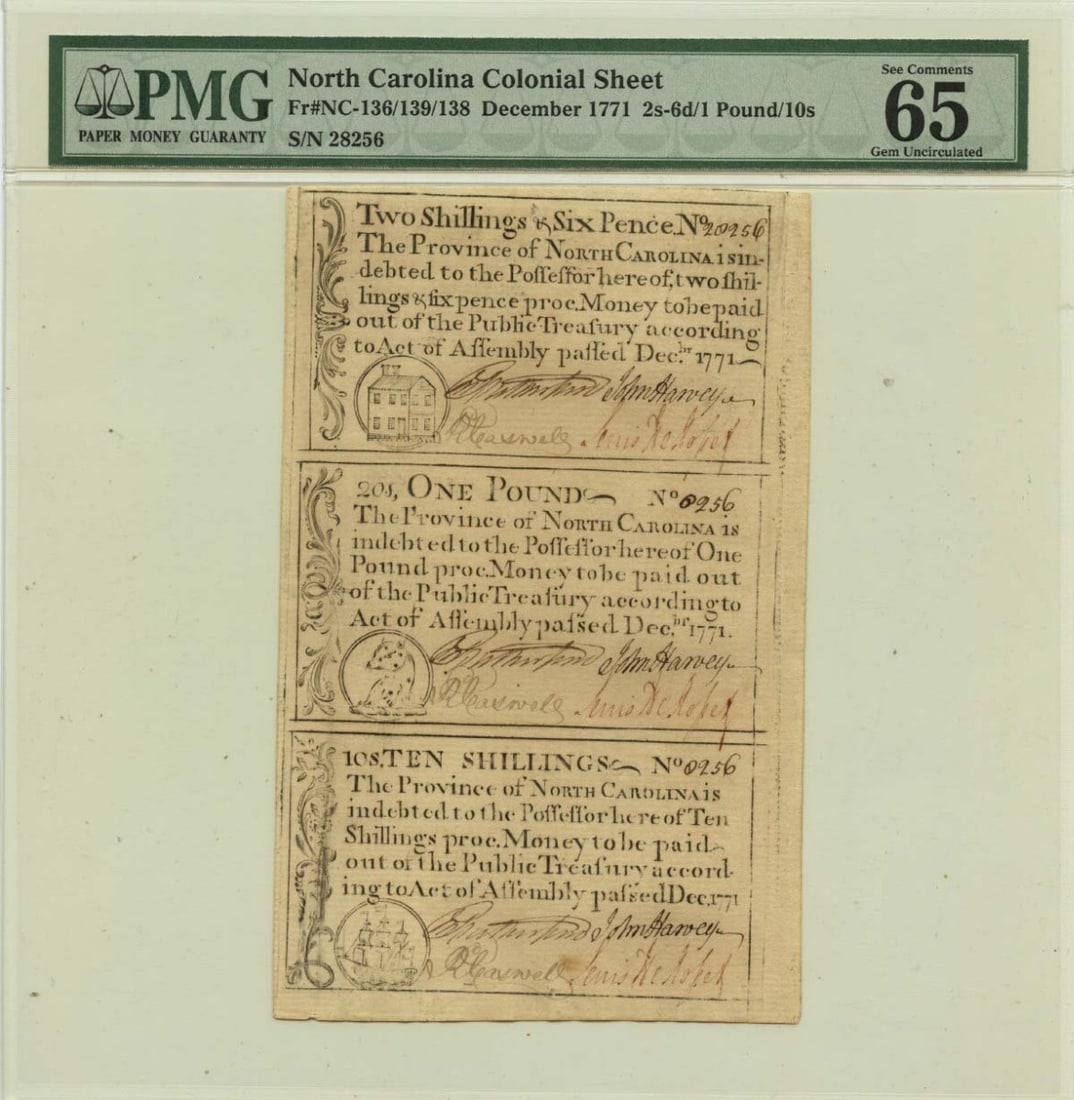 PMG
PAPER MONEY GUARANTY
North Carolina Colonial Sheet
Fr#NC-136/139/138 December 1771 2s-6d/1 Pound/10s
S/N 28256
See Comments
65
Gem Uncirculated
Two Shillings & Six Pence. No 28256
The Province of NORTH CAROLINA is in-
debted to the Poſſeſſor hereof, two ſhil-
lings & ſix pence proc. Money to be paid
out of the Public Treaſury according
to Act of Aſſembly paſſed Dec.br 1771
John Harvey
RCaswell
20s, ONE POUND No 8256
The Province of NORTH CAROLINA is
indebted to the Poſſeſſor hereof One
Pound proc. Money to be paid out
of the Public Treaſury according to
Act of Aſſembly paſsed Dec.br 1771.
John Harvey
RCaswell
10s. TEN SHILLINGS No 8256
The Province of NORTH CAROLINA is
indebted to the Poſſeſſor here of Ten
Shillings proc. Money to be paid
out of the Public Treaſury accord-
ing to Act of Aſſembly paſsed Dec. 1771
John Harvey
RCaswell